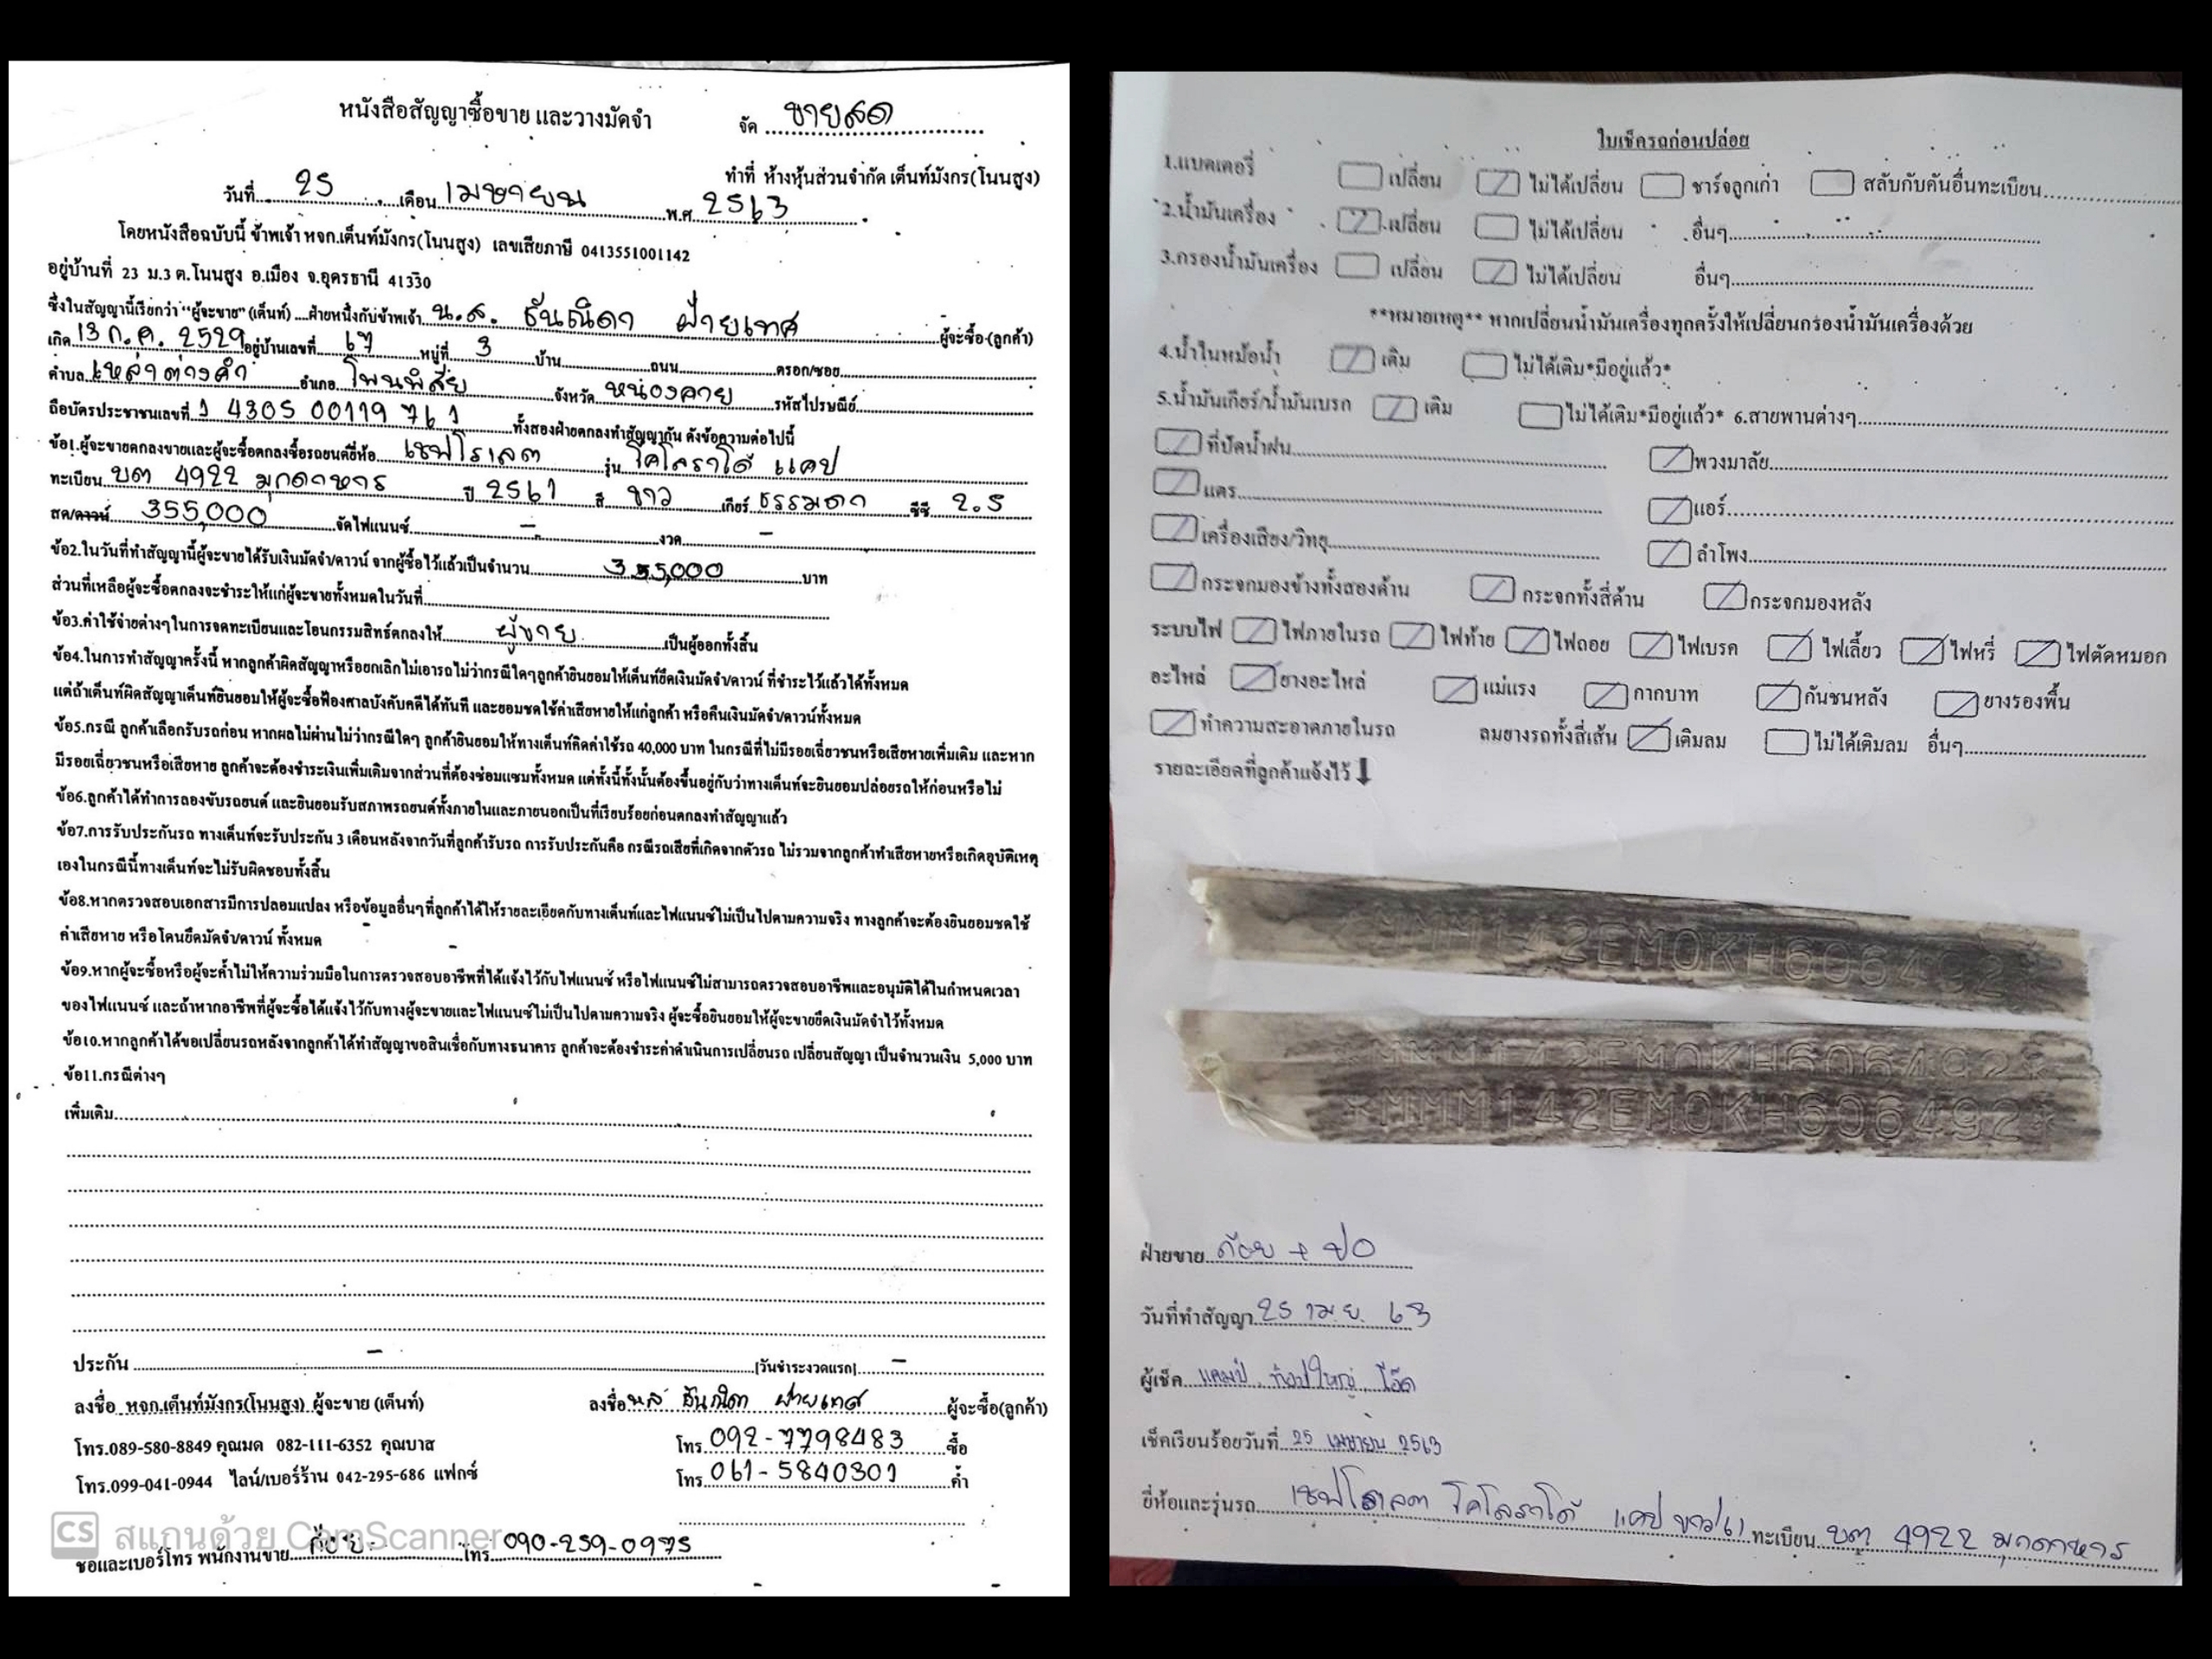 หนังสือสัญญาซื้อขาย และวางมัดจำ
จัด ขายสด
ทำที่ ห้างหุ้นส่วนจำกัด เต็นท์มังกร(โนนสูง)
วันที่ 25 เดือน เมษายน พ.ศ 2563
โดยหนังสือฉบับนี้ ข้าพเจ้า หจก.เต็นท์มังกร(โนนสูง) เลขเสียภาษี 0413551001142
อยู่บ้านที่ 23 ม.3 ต.โนนสูง อ.เมือง จ.อุดรธานี 41330
ซึ่งในสัญญานี้เรียกว่า "ผู้จะขาย" (เต็นท์) ....ฝ่ายหนึ่งกับข้าพเจ้า น.ส. ธันณิดา ฝ่ายเทศ ผู้จะซื้อ (ลูกค้า)
เกิด 13 ก.ค. 2529 อยู่บ้านเลขที่ 67 หมู่ที่ 3 บ้าน ถนน ตรอก/ซอย
ตำบล เหล่าต่างคำ อำเภอ โพนพิสัย จังหวัด หนองคาย รหัสไปรษณีย์
ถือบัตรประชาชนเลขที่ 1 4305 00119 761 ทั้งสองฝ่ายตกลงทำสัญญากัน ดังข้อความต่อไปนี้
ข้อ1.ผู้จะขายตกลงขายและผู้จะซื้อตกลงซื้อรถยนต์ยี่ห้อ เชฟโรเลต รุ่น โคโลราโด้ แคป
ทะเบียน บต 4922 มุกดาหาร ปี 2561 สี ขาว เกียร์ ธรรมดา ซีซี 2.5
สด/ดาวน์ 355,000 จัดไฟแนนซ์ - งวด -
ข้อ2.ในวันที่ทำสัญญานี้ผู้จะขายได้รับเงินมัดจำ/ดาวน์ จากผู้ซื้อไว้แล้วเป็นจำนวน 355,000 บาท
ส่วนที่เหลือผู้จะซื้อตกลงจะชำระให้แก่ผู้จะขายทั้งหมดในวันที่
ข้อ3.ค่าใช้จ่ายต่างๆในการจดทะเบียนและโอนกรรมสิทธ์ตกลงให้ ผู้ขาย เป็นผู้ออกทั้งสิ้น
ข้อ4.ในการทำสัญญาครั้งนี้ หากลูกค้าผิดสัญญาหรือยกเลิกไม่เอารถไม่ว่ากรณีใดๆลูกค้ายินยอมให้เต็นท์ยึดเงินมัดจำ/ดาวน์ ที่ชำระไว้แล้วได้ทั้งหมด
แต่ถ้าเต็นท์ผิดสัญญาเต็นท์ยินยอมให้ผู้จะซื้อฟ้องศาลบังคับคดีได้ทันที และยอมชดใช้ค่าเสียหายให้แก่ลูกค้า หรือคืนเงินมัดจำ/ดาวน์ทั้งหมด
ข้อ5.กรณี ลูกค้าเลือกรับรถก่อน หากผลไม่ผ่านไม่ว่ากรณีใดๆ ลูกค้ายินยอมให้ทางเต็นท์คิดค่าใช้รถ 40,000 บาท ในกรณีที่ไม่มีรอยเฉี่ยวชนหรือเสียหายเพิ่มเติม และหาก
มีรอยเฉี่ยวชนหรือเสียหาย ลูกค้าจะต้องชำระเงินเพิ่มเติมจากส่วนที่ต้องซ่อมแซมทั้งหมด แต่ทั้งนี้ทั้งนั้นต้องขึ้นอยู่กับว่าทางเต็นท์จะยินยอมปล่อยรถให้ก่อนหรือไม่
ข้อ6.ลูกค้าได้ทำการลองขับรถยนต์ และยินยอมรับสภาพรถยนต์ทั้งภายในและภายนอกเป็นที่เรียบร้อยก่อนตกลงทำสัญญาแล้ว
ข้อ7.การรับประกันรถ ทางเต็นท์จะรับประกัน 3 เดือนหลังจากวันที่ลูกค้ารับรถ การรับประกันคือ กรณีรถเสียที่เกิดจากตัวรถ ไม่รวมจากลูกค้าทำเสียหายหรือเกิดอุบัติเหตุ
เองในกรณีนี้ทางเต็นท์จะไม่รับผิดชอบทั้งสิ้น
ข้อ8.หากตรวจสอบเอกสารมีการปลอมแปลง หรือข้อมูลอื่นๆที่ลูกค้าได้ให้รายละเอียดกับทางเต็นท์และไฟแนนซ์ไม่เป็นไปตามความจริง ทางลูกค้าจะต้องยินยอมชดใช้
ค่าเสียหาย หรือโดนยึดมัดจำ/ดาวน์ ทั้งหมด
ข้อ9.หากผู้จะซื้อหรือผู้จะค้ำไม่ให้ความร่วมมือในการตรวจสอบอาชีพที่ได้แจ้งไว้กับไฟแนนซ์ หรือไฟแนนซ์ไม่สามารถตรวจสอบอาชีพและอนุมัติได้ในกำหนดเวลา
ของไฟแนนซ์ และถ้าหากอาชีพที่ผู้จะซื้อได้แจ้งไว้กับทางผู้จะขายและไฟแนนซ์ไม่เป็นไปตามความจริง ผู้จะซื้อยินยอมให้ผู้จะขายยึดเงินมัดจำไว้ทั้งหมด
ข้อ10.หากลูกค้าได้ขอเปลี่ยนรถหลังจากลูกค้าได้ทำสัญญาขอสินเชื่อกับทางธนาคาร ลูกค้าจะต้องชำระค่าดำเนินการเปลี่ยนรถ เปลี่ยนสัญญา เป็นจำนวนเงิน 5,000 บาท
ข้อ11.กรณีต่างๆ
เพิ่มเติม
ประกัน - [วันชำระงวดแรก] -
ลงชื่อ หจก.เต็นท์มังกร(โนนสูง) ผู้จะขาย (เต็นท์) ลงชื่อ ธันณิดา ฝ่ายเทศ ผู้จะซื้อ(ลูกค้า)
โทร.089-580-8849 คุณมด 082-111-6352 คุณบาส โทร. 092-7798483 ซื้อ
โทร.099-041-0944 ไลน์/เบอร์ร้าน 042-295-686 แฟกซ์ โทร. 061-5840301 ค้ำ
CS สแกนด้วย CamScanner
ชื่อและเบอร์โทร พนักงานขาย ก้อย โทร 090-259-0975
ใบเช็ครถก่อนปล่อย
1.แบตเตอรี่ เปลี่ยน ไม่ได้เปลี่ยน ชาร์จลูกเก่า สลับกับคันอื่นทะเบียน
2.น้ำมันเครื่อง เปลี่ยน ไม่ได้เปลี่ยน อื่นๆ
3.กรองน้ำมันเครื่อง เปลี่ยน ไม่ได้เปลี่ยน อื่นๆ
**หมายเหตุ** หากเปลี่ยนน้ำมันเครื่องทุกครั้งให้เปลี่ยนกรองน้ำมันเครื่องด้วย
4.น้ำในหม้อน้ำ เติม ไม่ได้เติม*มีอยู่แล้ว*
5.น้ำมันเกียร์/น้ำมันเบรค เติม ไม่ได้เติม*มีอยู่แล้ว* 6.สายพานต่างๆ
ที่ปัดน้ำฝน พวงมาลัย
แตร แอร์
เครื่องเสียง/วิทยุ ลำโพง
กระจกมองข้างทั้งสองด้าน กระจกทั้งสี่ด้าน กระจกมองหลัง
ระบบไฟ ไฟภายในรถ ไฟท้าย ไฟถอย ไฟเบรค ไฟเลี้ยว ไฟหรี่ ไฟตัดหมอก
อะไหล่ ยางอะไหล่ แม่แรง กากบาท กันชนหลัง ยางรองพื้น
ทำความสะอาดภายในรถ ลมยางรถทั้งสี่เส้น เติมลม ไม่ได้เติมลม อื่นๆ
รายละเอียดที่ลูกค้าแจ้งไว้
*MMM142EM0KH606492*
*MMM142EM0KH606492*
*MMM142EM0KH606492*
ฝ่ายขาย ก้อย + ปอ
วันที่ทำสัญญา 25 เม.ย. 63
ผู้เช็ค แคมป์
เช็คเรียบร้อยวันที่ 25 เมษายน 2563
ยี่ห้อและรุ่นรถ เชฟโรเลต โคโลราโด้ แคป ขาว/61 ทะเบียน บต 4922 มุกดาหาร